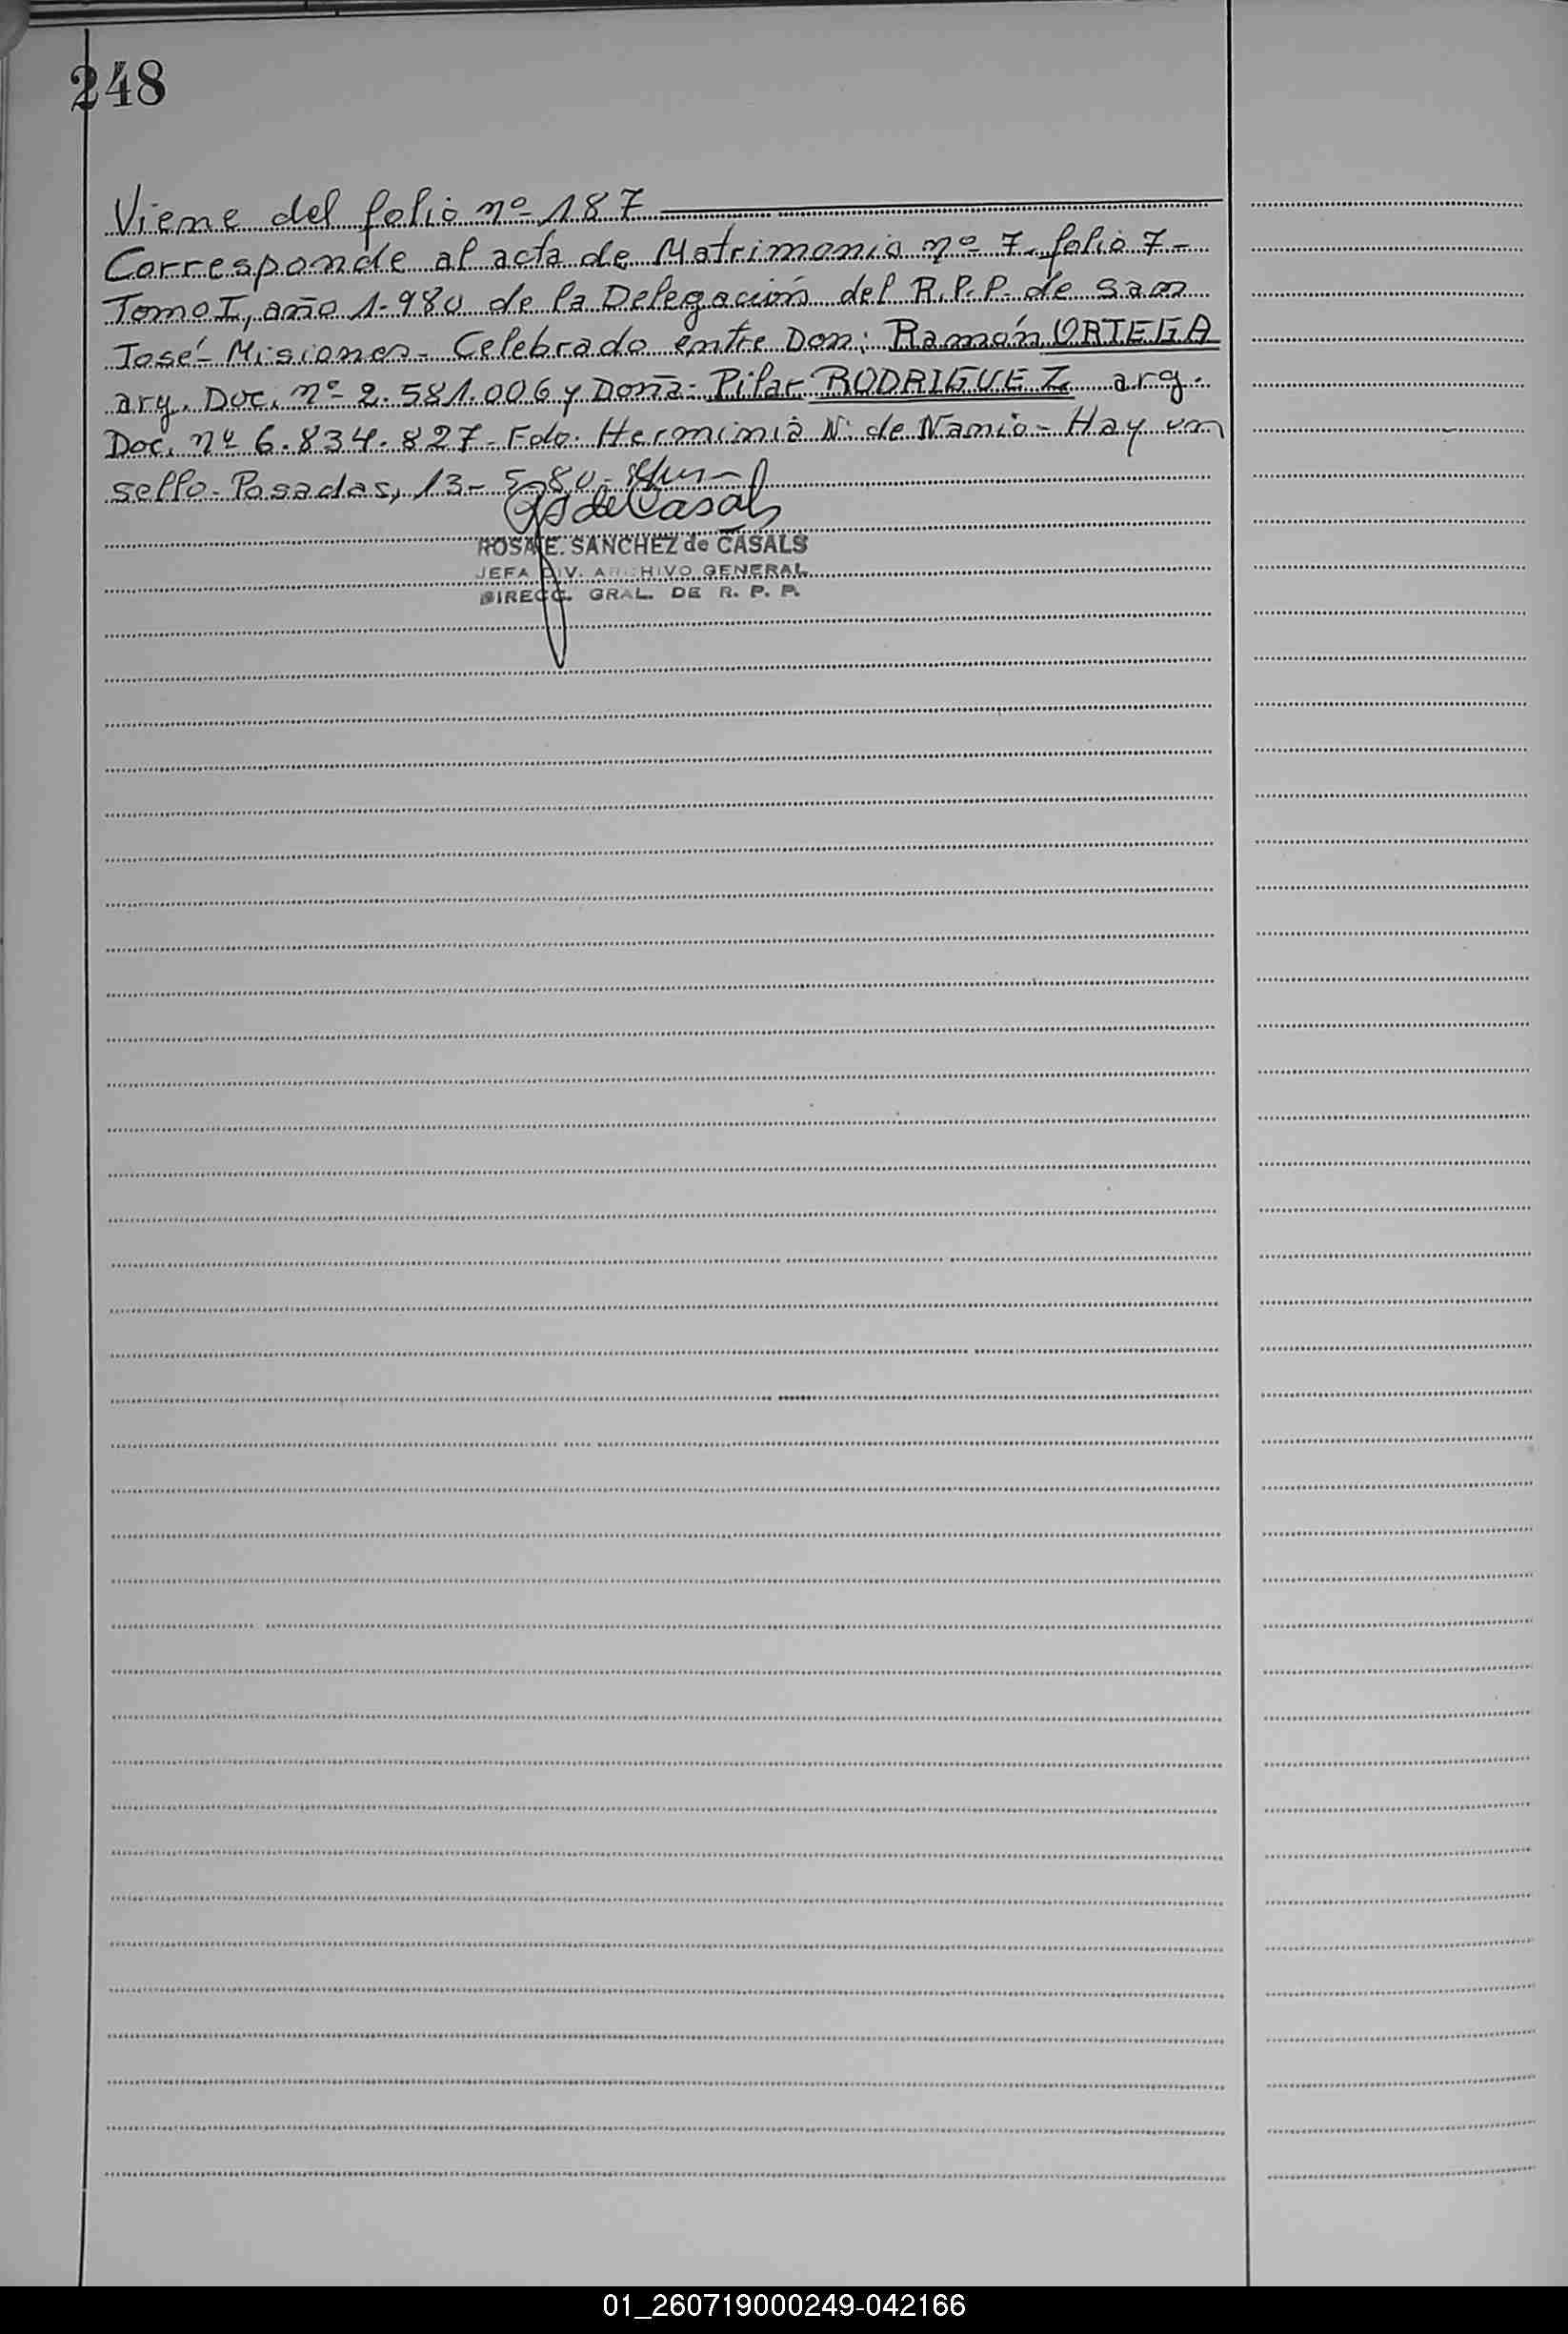 248
Viene del folio nº 187
Corresponde al acta de Matrimonio nº 7- folio 7-
Tomo I, año 1.980 de la Delegación del R.P.P. de San
José- Misiones- Celebrado entre Don: Ramón ORTEGA
arg. Doc. nº 2.581.006 y Doña: Pilar RODRIGUEZ arg.
Doc. nº 6.834.827- Fdo. Herminia N. de Namio- Hay un
sello- Posadas, 13- 5-80-
de Casals
ROSA E. SANCHEZ de CASALS
JEFA DIV. ARCHIVO GENERAL
DIRECC. GRAL. DE R. P. P.
01_260719000249-042166